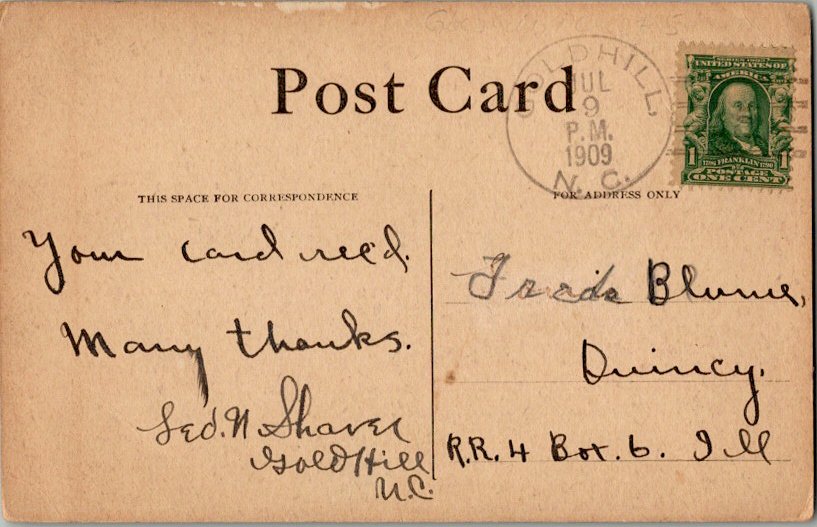 Post Card
GOLD HILL,
JUL
9
P.M.
1909
N. C.
SERIES 1902
UNITED STATES OF
AMERICA
1 1
1706 FRANKLIN 1790
POSTAGE
ONE CENT
THIS SPACE FOR CORRESPONDENCE
Your card rec'd.
Many thanks.
Geo. N. Shaver
Gold Hill
N.C.
FOR ADDRESS ONLY
Freida Blume,
Quincy.
R.R. 4 Box. 6. Ill